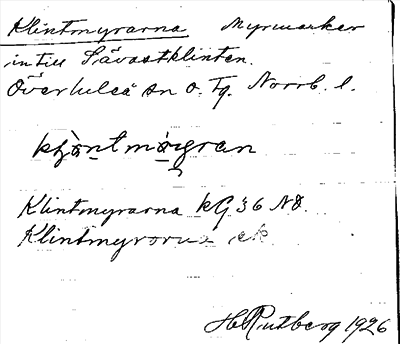 Klintmyrarna Myrmarker
intill Sävastklinten.
Överluleå sn o. Tg. Norrb. l.
Klintmyrarna kG 36 NÖ.
Klintmyrarna ek
H Rutberg 1926